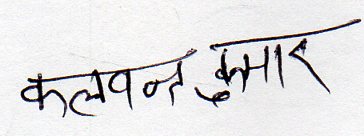 कलवन्त कुमार